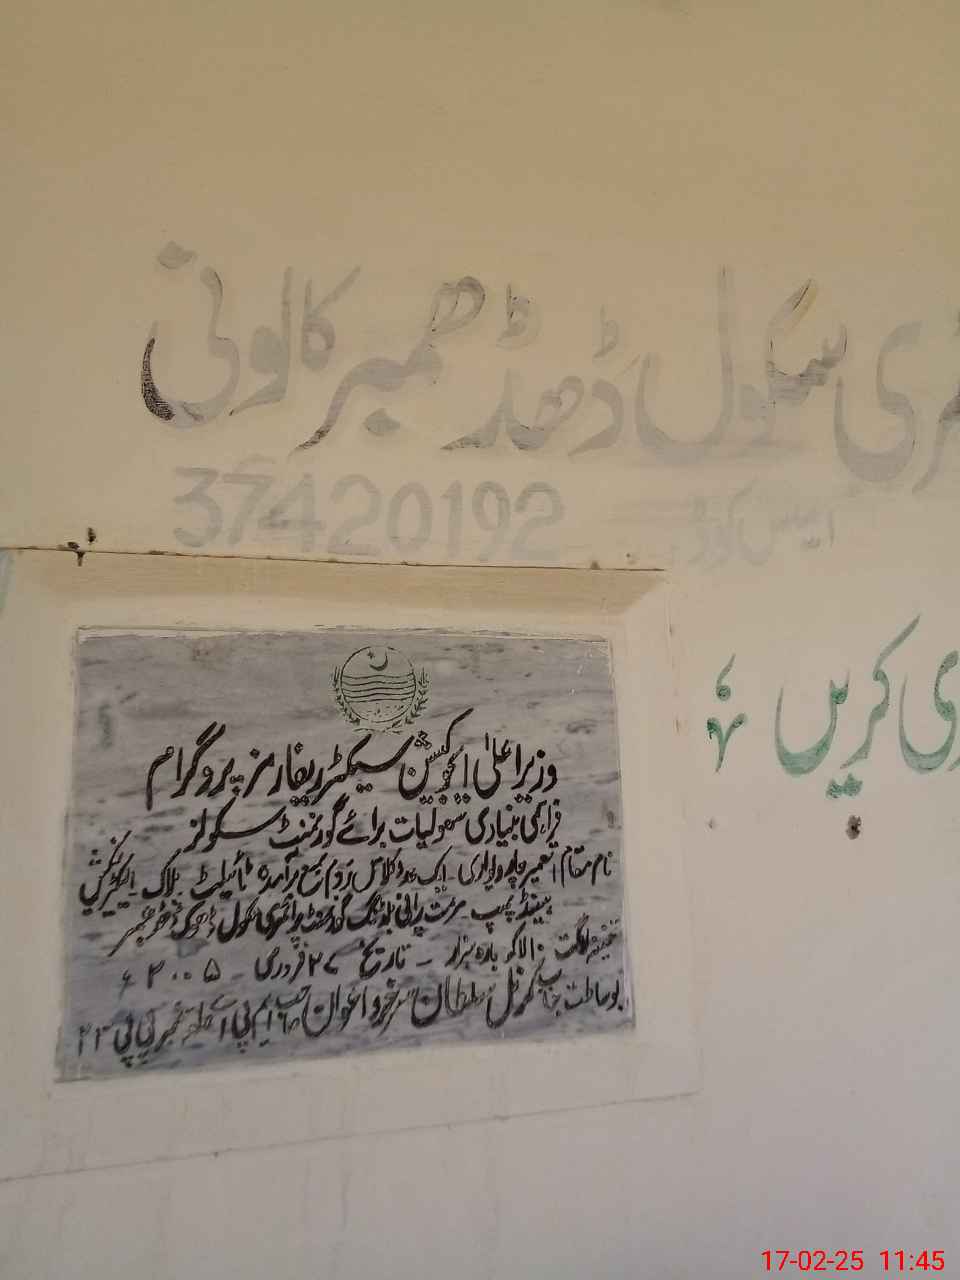 ری سکول ڈھڈھمبر کالونی
37420192
ی کریں
وزیراعلیٰ ایجوکیشن سیکٹر ریفارمز پروگرام
فراہمی بنیادی سہولیات برائے گورنمنٹ سکولز
نام مقام تعمیر چار دیواری ایک عدد کلاس روم بمع برآمدہ ٹائیلٹ بلاک الیکٹریفکیشن
ہینڈ پمپ مرمت پرانی بلڈنگ گورنمنٹ پرائمری سکول ڈھوک
تخمینہ لاگت ۱۰ لاکھ بارہ ہزار - تاریخ ۲۷ فروری ۲۰۰۵ء
بوساطت جناب کرنل سلطان سرخرو اعوان صاحب ایم پی اے حلقہ نمبر پی پی ۲۳
17-02-25 11:45